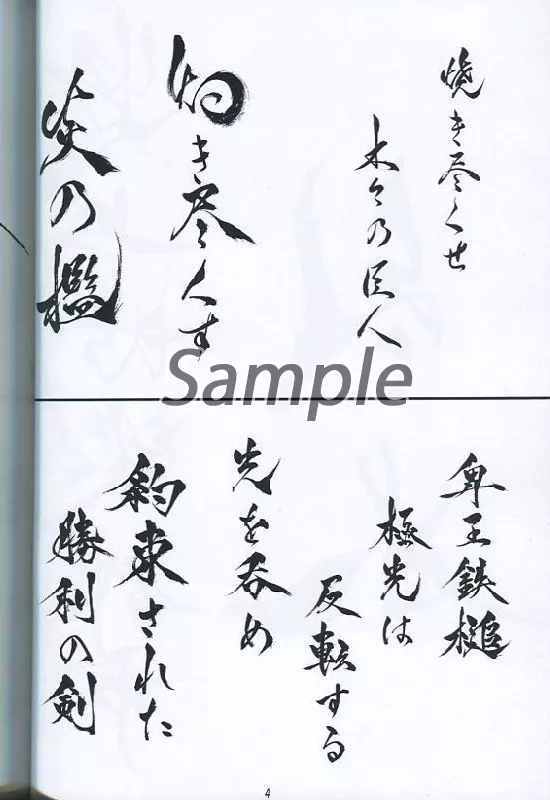 焼き尽くせ
木々の巨人
灼き尽くす
炎の檻
Sample
卑王鉄槌
極光は
反転する
光を呑め
約束された
勝利の剣
4